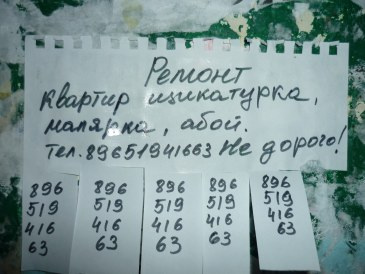 Ремонт
квартир щикатурка,
малярка, абой.
тел. 89651941663 Не дорого!
896 896 896 896 896
519 519 519 519 519
416 416 416 416 416
63 63 63 63 63